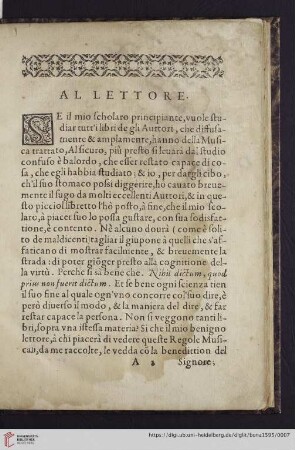 AL LETTORE.
SE il mio scholaro principiante, vuole stu
diar tutt'i libri de gli Auttori, che diffusa
mente & amplamente, hãno della Musi
ca trattato, Al securo, più presto si leuarà dal studio
confuso è balordo, che esser restato capace di co
sa, che egli habbia studiato; & io, per dargli cibo,
ch'il suo stomaco possi diggerire, ho cauato breue
mente il sugo da molti eccellenti Auttori, & in que
sto picciol libretto l'hò posto, à fine, che il mio sco
laro, à piacer suo lo possa gustare, con sua sodisfat
tione, è contento. Nè alcuno dourà (come è soli
to de maldicenti) tagliar il giupone à quelli che s'af
faticano di mostrar facilmente, & breuemente la
strada di poter giõger presto alla cognitione del
la virtù. Perche si sa bene che. Nihil dictum, quod
prius non fuerit dictum. Et se bene ogni scienza tien
il suo fine al quale ogn'vno concorre col suo dire, è
però diuerso il modo, & la maniera del dire, & far
restar capace la persona. Non si veggono tanti li
bri, sopra vna istessa materia? Si che il mio benigno
lettore, à chi piacerà di vedere queste Regole Musi
cali, da me raccolte, le vedda cõ la benedittion del
A Signore;
https://digi.ub.uni-heidelberg.de/diglit/bona1595/0007